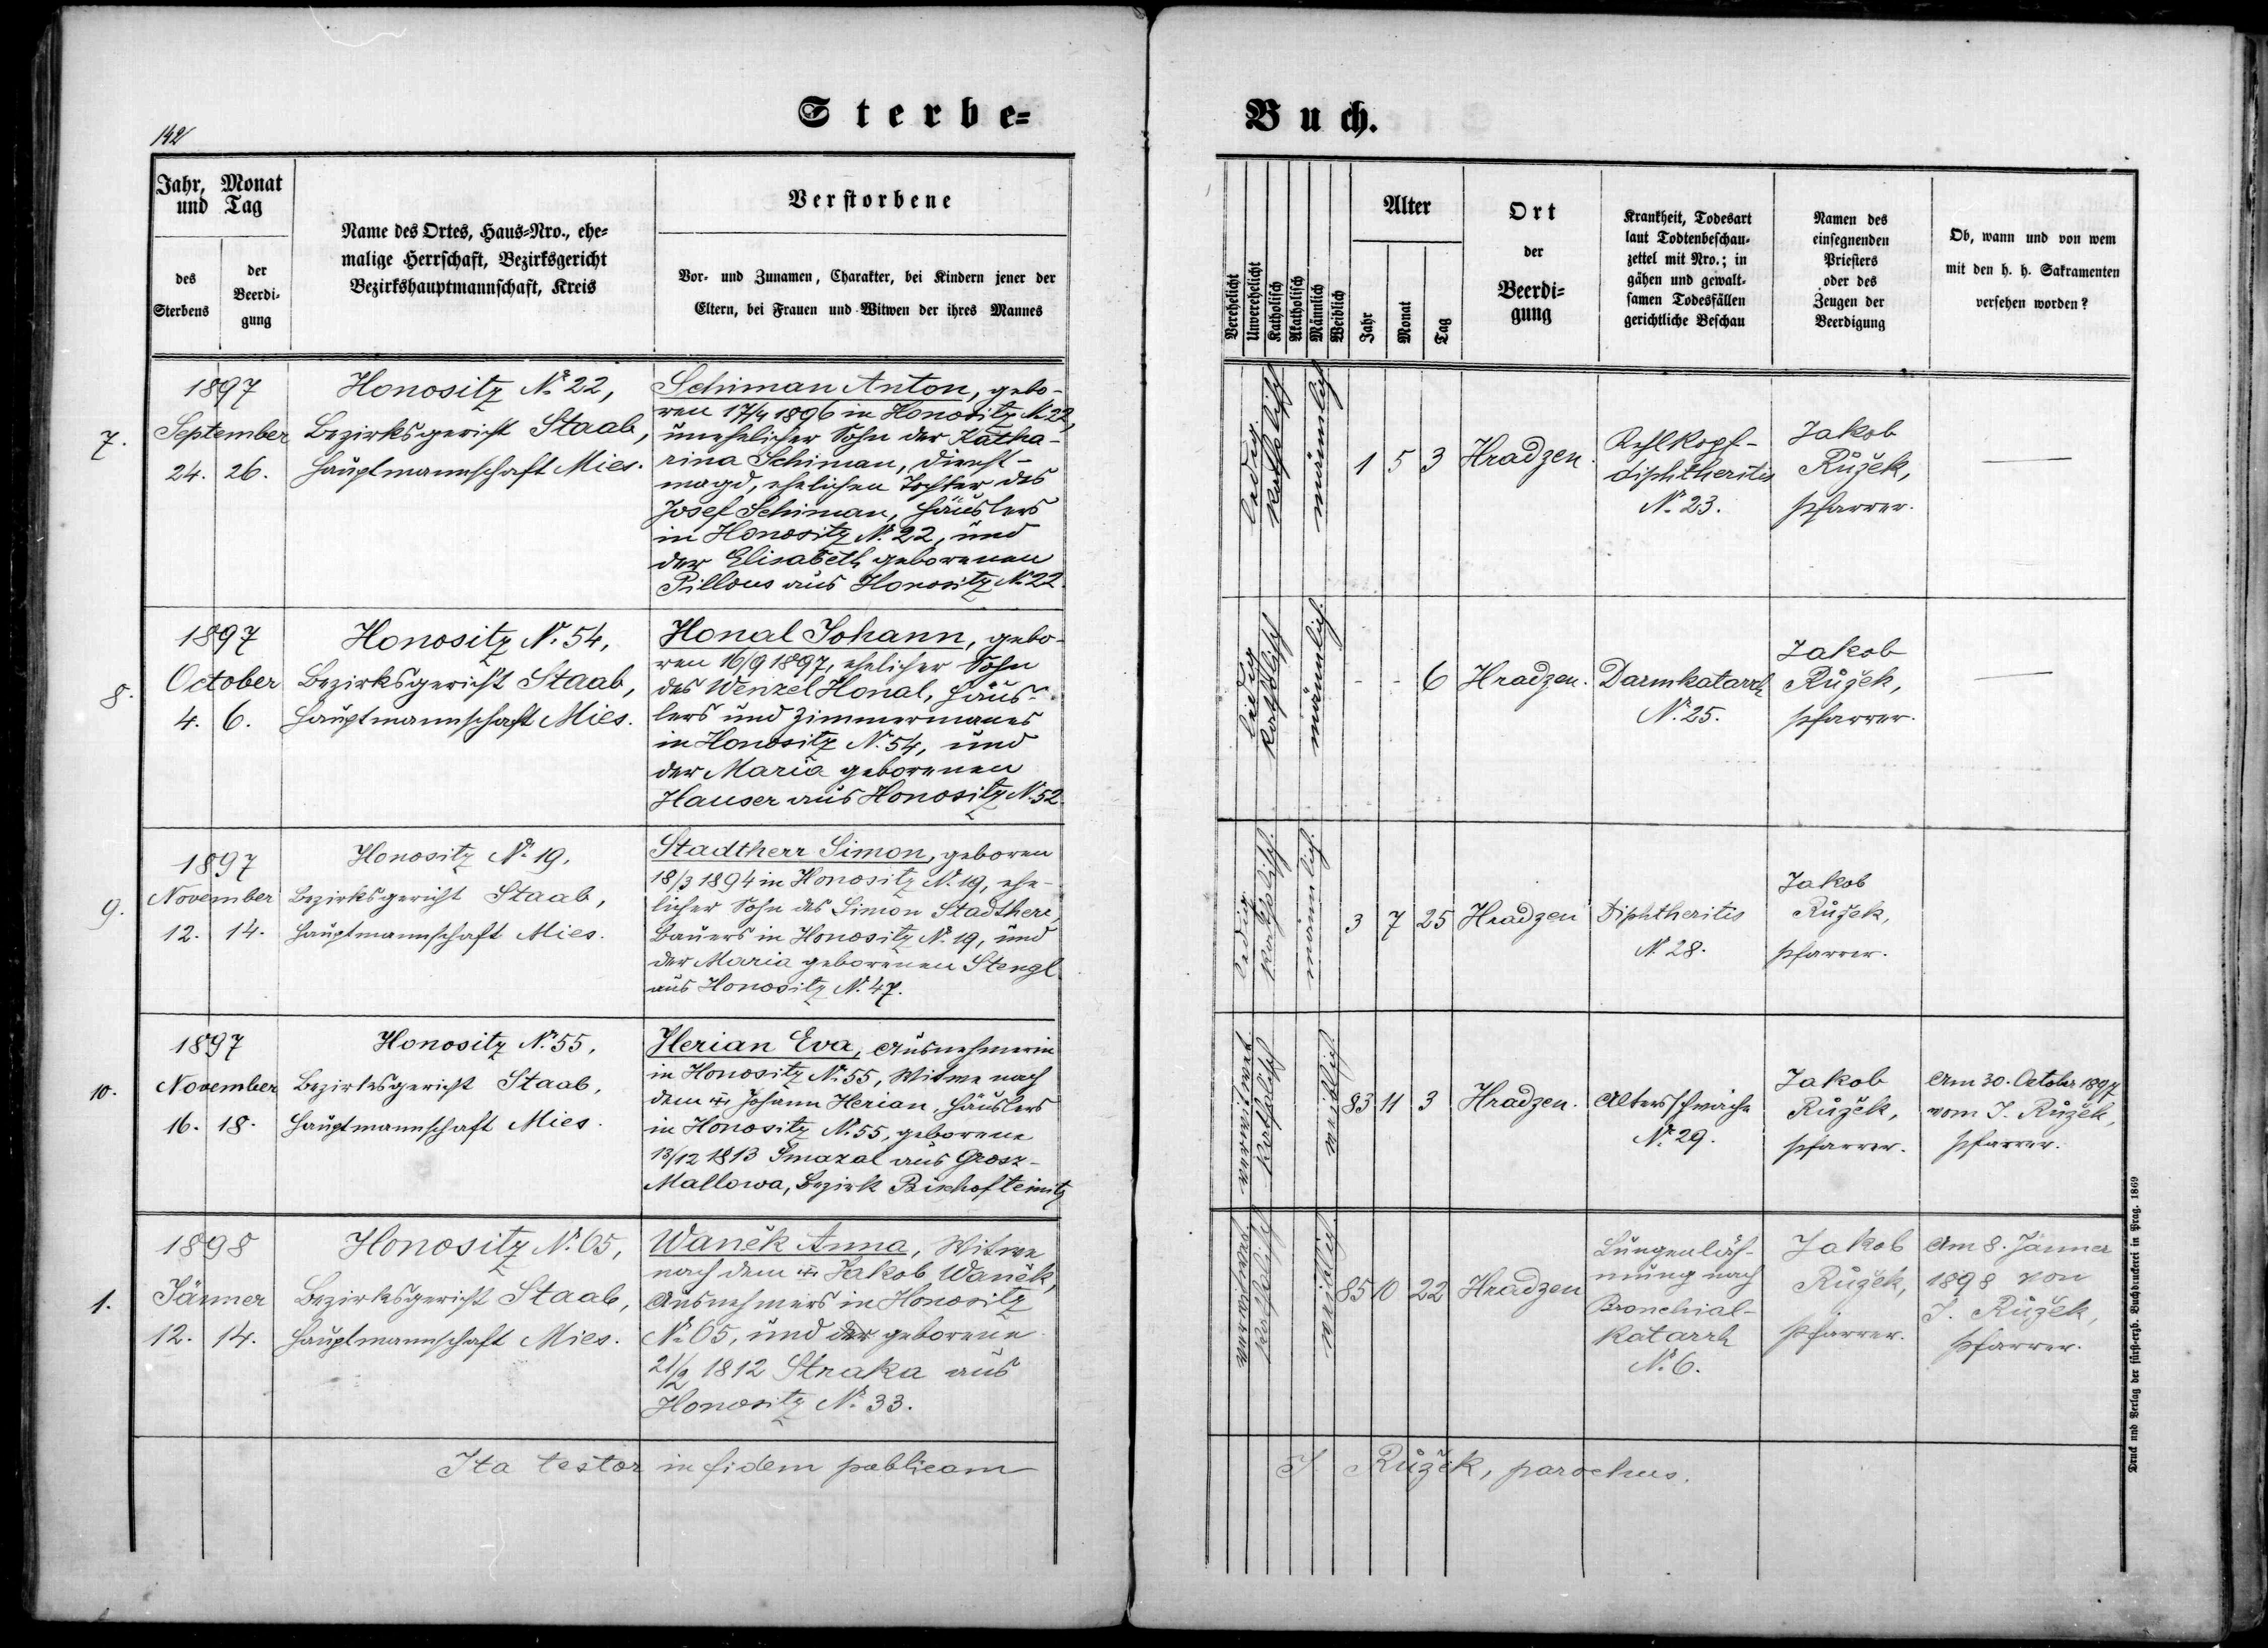 Sterbe=
Buch.
142
Jahr, Monat
und Tag
des
Sterbens
der
Beerdi-
gung
Name des Ortes, Haus=Nro., ehe-
malige Herrschaft, Bezirksgericht
Bezirkshauptmannschaft, Kreis
Verstorbene
Vor- und Zunamen, Charakter, bei Kindern jener der
Eltern, bei Frauen und Witwen der ihres Mannes
Verehelicht
Unverehelicht
Katholisch
Akatholisch
Männlich
Weiblich
Alter
Jahr
Monat
Tag
Ort
der
Beerdi=
gung
Krankheit, Todesart
laut Todtenbeschau-
zettel mit Nro.; in
gähen und gewalt-
samen Todesfällen
gerichtliche Beschau
Namen des
einsegnenden
Priesters
oder des
Zeugen der
Beerdigung
Ob, wann und von wem
mit den h. h. Sakramenten
versehen worden?
7.
1897
September
24. 26.
Honositz No. 22,
Bezirksgericht Staab,
Hauptmannschaft Mies.
Schiman Anton, gebo-
ren 17/4 1896 in Honositz No. 22,
unehelicher Sohn der Katha-
rina Schiman, Dienst-
magd, ehelichen Tochter des
Josef Schiman, Häuslers
in Honositz No. 22, und
der Elisabeth geborenen
Pillous aus Honositz No. 22.
ledig.
katholisch
männlich
1 5 3
Hradzen.
Kehlkopf-
diphtheritis
No. 23.
Jakob
Růžek,
Pfarrer.
—
8.
1897
October
4. 6.
Honositz No. 54,
Bezirksgericht Staab,
Hauptmannschaft Mies.
Honal Johann, gebo-
ren 16/9 1897, ehelicher Sohn
des Wenzel Honal, Häus-
lers und Zimmermanns
in Honositz No. 54, und
der Maria geborenen
Hauser aus Honositz No. 52.
ledig
katholisch
männlich.
- - 6
Hradzen.
Darmkatarrh
No. 25.
Jakob
Růžek,
Pfarrer.
—
9.
1897
November
12. 14.
Honositz No. 19,
Bezirksgericht Staab,
Hauptmannschaft Mies.
Stadtherr Simon, geboren
18/3 1894 in Honositz No. 19, ehe-
licher Sohn des Simon Stadtherr,
Bauers in Honositz No. 19, und
der Maria geborenen Stengl
aus Honositz No. 47.
ledig
katholisch.
männlich.
3 7 25
Hradzen
Diphtheritis
No. 28.
Jakob
Růžek,
Pfarrer.
10.
1897
November
16. 18.
Honositz No. 55,
Bezirksgericht Staab,
Hauptmannschaft Mies.
Herian Eva, Ausnehmerin
in Honositz No. 55, Witwe nach
dem † Johann Herian, Häuslers
in Honositz No. 55, geborene
13/12 1813 Smazal aus Grosz-
Mallowa, Bezirk Bischofteinitz
verwitwet.
katholisch
weiblich.
83 11 3
Hradzen.
Altersschwäche
No. 29.
Jakob
Růžek,
Pfarrer.
Am 30. October 1897
vom J. Růžek,
Pfarrer.
1.
1898
Jänner
12. 14.
Honositz No. 65,
Bezirksgericht Staab,
Hauptmannschaft Mies.
Waněk Anna, Witwe
nach dem † Jakob Waněk,
Ausnehmers in Honositz
No. 65, und der geborene
21/2 1812 Straka aus
Honositz No. 33.
verwitwet.
katholisch
weiblich.
85 10 22
Hradzen
Lungenläh-
mung nach
Bronchial-
katarrh
No. 6.
Jakob
Růžek,
Pfarrer.
Am 8. Jänner
1898 von
J. Růžek,
Pfarrer.
Ita testor in fidem publicam
J. Růžek, parochus.
Druck und Verlag der fürst-erzb. Buchdruckerei in Prag. 1869